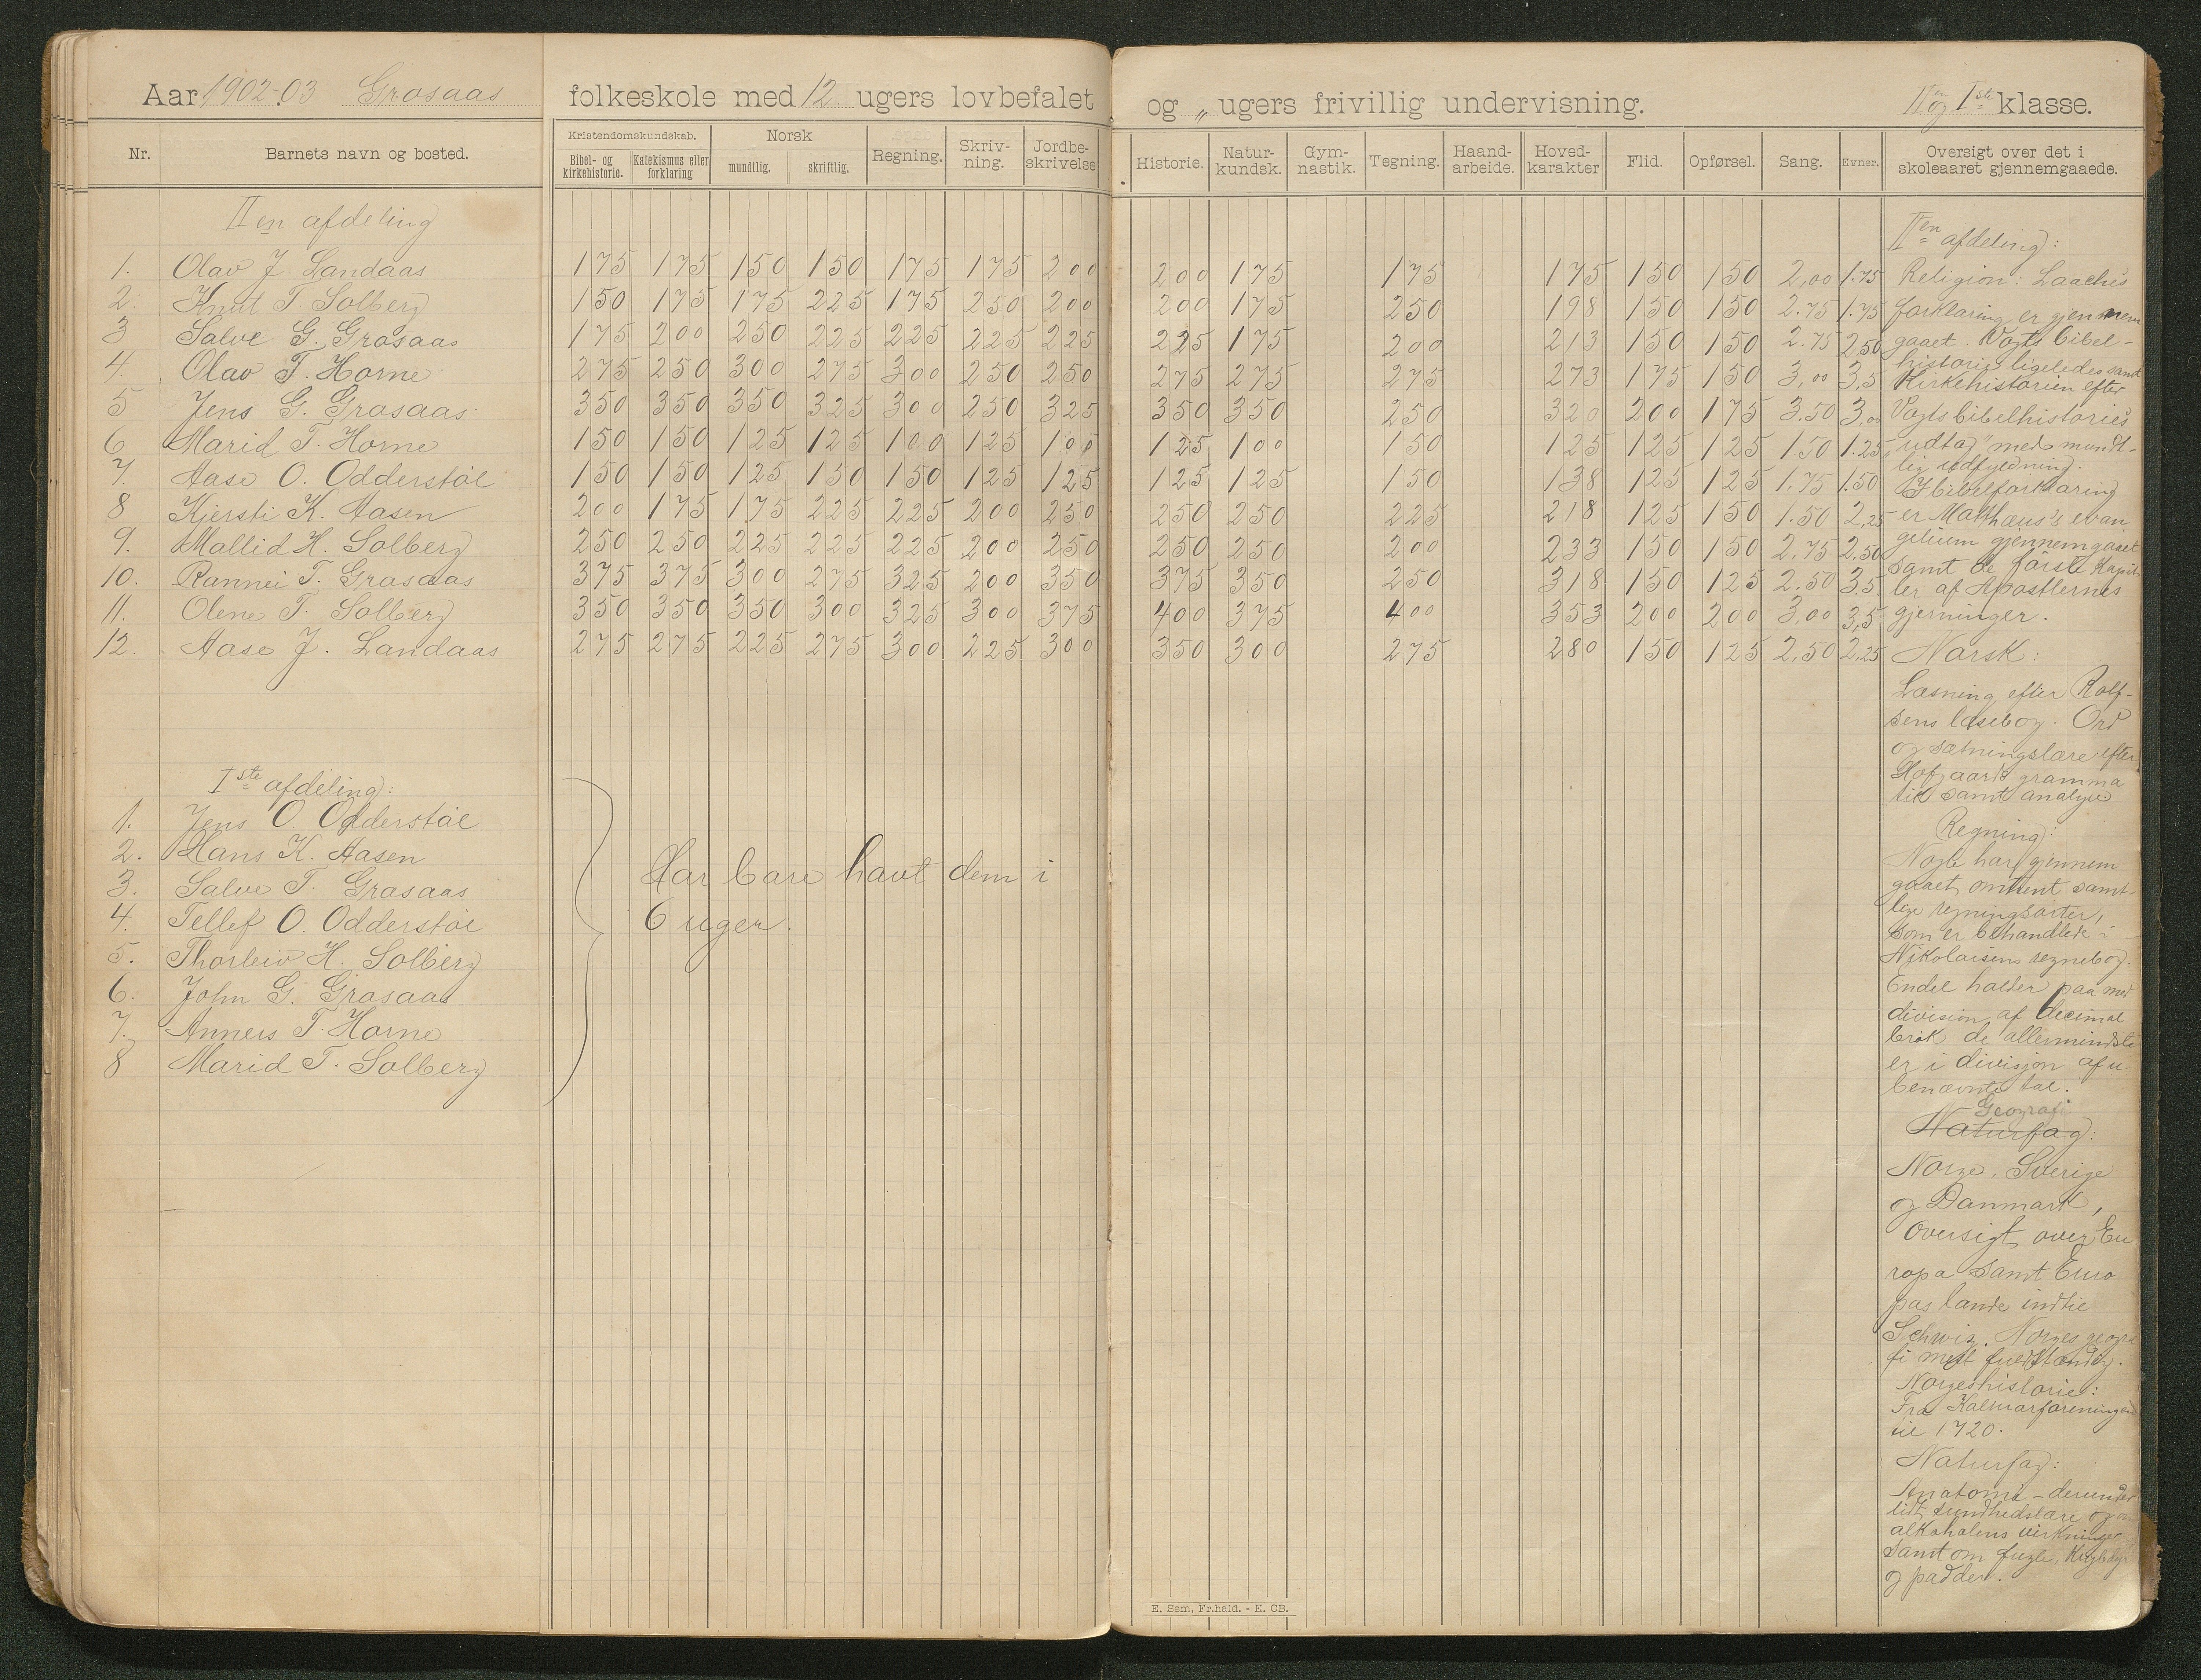 Aar 1902-03 Grosaas folkeskole med 12 ugers lovbefalet og „ ugers frivillig undervisning. IIen og Iste klasse.
Nr. Barnets navn og bosted. Kristendomskundskab. Bibel- og kirkehistorie. Katekismus eller forklaring Norsk mundtlig. skriftlig. Regning. Skriv-ning. Jordbe-skrivelse Historie. Natur-kundsk. Gym-nastik. Tegning. Haand-arbeide. Hoved-karakter Flid. Opførsel. Sang. Evner. Oversigt over det i skoleaaret gjennemgaaede.
IIen afdeling
1. Olav J. Landaas 175 175 150 150 175 175 200 200 175 175 175 150 150 2,00 1.75
2. Knut T. Solberg 150 175 175 225 175 250 200 200 175 250 198 150 150 2.75 1.75
3 Salve G. Grosaas 175 200 250 225 225 225 225 225 175 200 213 150 150 2.75 2,50
4. Olav T. Horne 275 250 300 275 300 250 250 275 275 275 273 175 150 3,00 3,5
5 Jens G. Grosaas 350 350 350 325 300 250 325 350 350 250 320 200 175 3.50 3,00
6 Marid T. Horne 150 150 125 125 100 125 100 125 100 150 125 125 125 1.50 1.25
7. Aase O. Odderstøl 150 150 125 150 150 125 125 125 125 150 138 125 125 1.75 1.50
8 Kjersti K. Aasen 200 175 175 225 225 200 250 250 250 225 218 125 150 1.50 2,25
9. Mallid H. Solberg 250 250 225 225 225 200 250 250 250 200 233 150 150 2.75 2.50
10. Rannei T. Grosaas 375 375 300 275 325 200 350 375 350 250 318 150 125 2.50 3.5
11. Olene T. Solberg 350 350 350 300 325 300 375 400 375 400 353 200 200 3,00 3,5
12. Aase J. Landaas 275 275 225 275 300 225 300 350 300 275 280 150 125 2,50 2,25
Iste afdeling:
1. Jens O. Odderstøl
2. Hans K. Aasen
3. Salve T. Grosaas
4. Tellef O. Odderstøl
5. Thorleiv H. Solberg
6. John G. Grosaas
7. Anners T. Horne
8 Marid T. Solberg
Har bare havt dem i
6 uger.
IIen afdeling:
Religion: Laache's
forklaring er gjennem
gaaet. Vogts bibel-
historie ligeledes samt
Kirkehistorien efter
Vogts bibelhistorie's
"udtog" med mundt-
lig udfyldning.
I bibelforklaring
er Matthæus's evan
gelium gjennemgaaet
samt de første kapit
ler af Apostlernes
gjerninger.
Norsk:
Læsning efter Rolf-
sens læsebog. Ord
og sætningslære efter
Hofgaards gramma
tik samt analyse
Regning:
Nogle har gjennem
gaaet omtrent samt-
lige regningsarter,
som er behandlede i
Nikolaisens regnebog.
Endel holder paa med
division af decimal
brøk de allermindste
er i divisjon af u-
benævnte tal.
Geografi
Naturfag:
Norge, Sverige
og Danmark,
Oversigt over Eu
ropa samt Euro
pas lande indtil
Schweiz. Norges geogra
fi mest fuldstændig.
Norgeshistorie:
Fra Kalmarforeningen
til 1720.
Naturfag:
Anatomi - derunder
lidt sundhedslære og om
alkoholens virkninger
samt om fugle, Krybdyr
og padder.
E. Sem, Fr.hald. - E. CB.